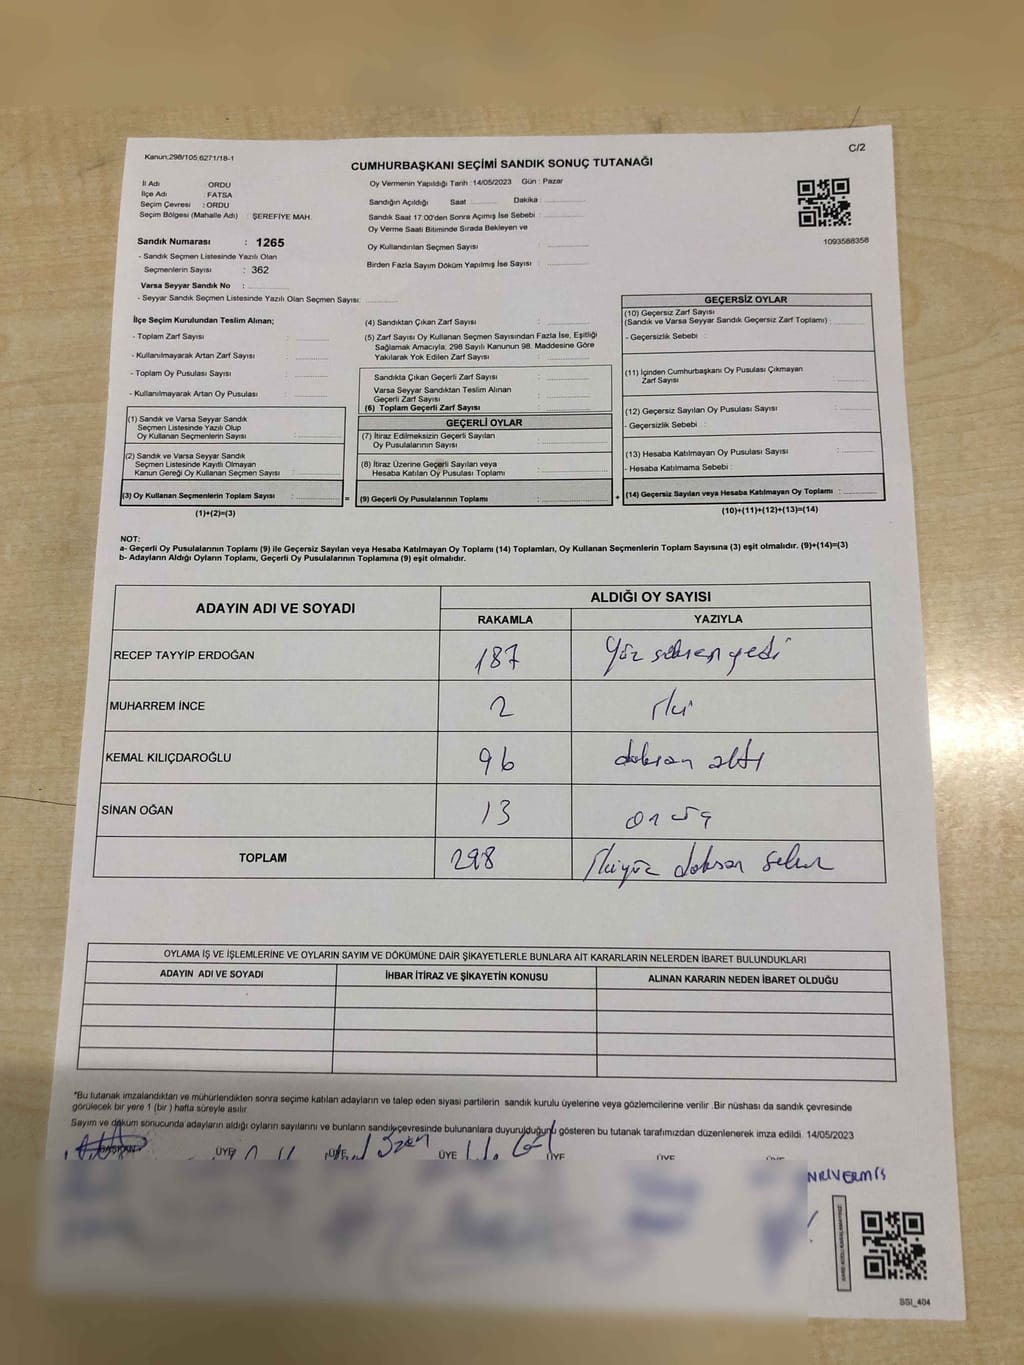 Kanun;298/105;6271/18-1
C/2
CUMHURBAŞKANI SEÇİMİ SANDIK SONUÇ TUTANAĞI
İl Adı ORDU
İlçe Adı : FATSA
Seçim Çevresi : ORDU
Seçim Bölgesi (Mahalle Adı) : ŞEREFİYE MAH.
Sandık Numarası : 1265
- Sandık Seçmen Listesinde Yazılı Olan
Seçmenlerin Sayısı : 362
Varsa Seyyar Sandık No :
- Seyyar Sandık Seçmen Listesinde Yazılı Olan Seçmen Sayısı:
Oy Vermenin Yapıldığı Tarih : 14/05/2023 Gün : Pazar
Sandığın Açıldığı Saat : Dakika :
Sandık Saat 17:00'den Sonra Açımış İse Sebebi :
Oy Verme Saati Bitiminde Sırada Bekleyen ve
Oy Kullandırılan Seçmen Sayısı :
Birden Fazla Sayım Döküm Yapılmış İse Sayısı :
1093588358
İlçe Seçim Kurulundan Teslim Alınan;
- Toplam Zarf Sayısı :
- Kullanılmayarak Artan Zarf Sayısı :
- Toplam Oy Pusulası Sayısı :
- Kullanılmayarak Artan Oy Pusulası :
(1) Sandık ve Varsa Seyyar Sandık
Seçmen Listesinde Yazılı Olup
Oy Kullanan Seçmenlerin Sayısı :
(2) Sandık ve Varsa Seyyar Sandık
Seçmen Listesinde Kayıtlı Olmayan
Kanun Gereği Oy Kullanan Seçmen Sayısı :
(3) Oy Kullanan Seçmenlerin Toplam Sayısı :
(1)+(2)=(3)
(4) Sandıktan Çıkan Zarf Sayısı :
(5) Zarf Sayısı Oy Kullanan Seçmen Sayısından Fazla İse, Eşitliği
Sağlamak Amacıyla, 298 Sayılı Kanunun 98. Maddesine Göre
Yakılarak Yok Edilen Zarf Sayısı :
Sandıkta Çıkan Geçerli Zarf Sayısı :
Varsa Seyyar Sandıktan Teslim Alınan
Geçerli Zarf Sayısı :
(6) Toplam Geçerli Zarf Sayısı :
GEÇERLİ OYLAR
(7) İtiraz Edilmeksizin Geçerli Sayılan
Oy Pusulalarının Sayısı :
(8) İtiraz Üzerine Geçerli Sayılan veya
Hesaba Katılan Oy Pusulaları Toplamı :
= (9) Geçerli Oy Pusulalarının Toplamı : +
GEÇERSİZ OYLAR
(10) Geçersiz Zarf Sayısı
(Sandık ve Varsa Seyyar Sandık Geçersiz Zarf Toplamı) :
- Geçersizlik Sebebi :
(11) İçinden Cumhurbaşkanı Oy Pusulası Çıkmayan
Zarf Sayısı :
(12) Geçersiz Sayılan Oy Pusulası Sayısı :
- Geçersizlik Sebebi :
(13) Hesaba Katılmayan Oy Pusulası Sayısı :
- Hesaba Katılmama Sebebi :
(14) Geçersiz Sayılan veya Hesaba Katılmayan Oy Toplamı :
(10)+(11)+(12)+(13)=(14)
NOT:
a- Geçerli Oy Pusulalarının Toplamı (9) ile Geçersiz Sayılan veya Hesaba Katılmayan Oy Toplamı (14) Toplamları, Oy Kullanan Seçmenlerin Toplam Sayısına (3) eşit olmalıdır. (9)+(14)=(3)
b- Adayların Aldığı Oyların Toplamı, Geçerli Oy Pusulalarının Toplamına (9) eşit olmalıdır.
ADAYIN ADI VE SOYADI ALDIĞI OY SAYISI
RAKAMLA YAZIYLA
RECEP TAYYİP ERDOĞAN 187 Yüz seksen yedi
MUHARREM İNCE 2 İki
KEMAL KILIÇDAROĞLU 96 doksan altı
SİNAN OĞAN 13 on üç
TOPLAM 298 İkiyüz doksan sekiz
OYLAMA İŞ VE İŞLEMLERİNE VE OYLARIN SAYIM VE DÖKÜMÜNE DAİR ŞİKAYETLERLE BUNLARA AİT KARARLARIN NELERDEN İBARET BULUNDUKLARI
ADAYIN ADI VE SOYADI İHBAR İTİRAZ VE ŞİKAYETİN KONUSU ALINAN KARARIN NEDEN İBARET OLDUĞU
*Bu tutanak imzalandıktan ve mühürlendikten sonra seçime katılan adayların ve talep eden siyasi partilerin sandık kurulu üyelerine veya gözlemcilerine verilir .Bir nüshası da sandık çevresinde
görülecek bir yere 1 (bir ) hafta süreyle asılır.
Sayım ve döküm sonucunda adayların aldığı oyların sayılarını ve bunların sandık çevresinde bulunanlara duyurulduğunu gösteren bu tutanak tarafımızdan düzenlenerek imza edildi. 14/05/2023
BAŞKAN ÜYE ÜYE ÜYE ÜYE ÜYE ÜYE
SSI_404